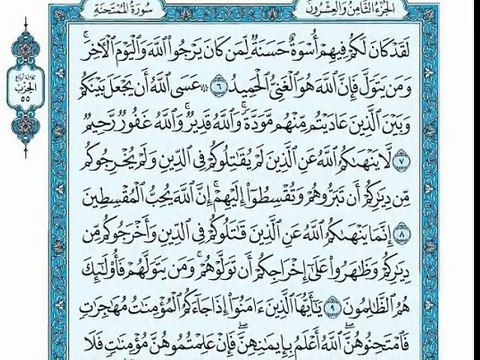 الجزء الثامن والعشرون
سورة الممتحنة
لَقَدْ كَانَ لَكُمْ فِيهِمْ أُسْوَةٌ حَسَنَةٌ لِّمَن كَانَ يَرْجُوا۟ ٱللَّهَ وَٱلْيَوْمَ ٱلْـَٔاخِرَ ۚ
وَمَن يَتَوَلَّ فَإِنَّ ٱللَّهَ هُوَ ٱلْغَنِىُّ ٱلْحَمِيدُ ٦ ۞ عَسَى ٱللَّهُ أَن يَجْعَلَ بَيْنَكُمْ
وَبَيْنَ ٱلَّذِينَ عَادَيْتُم مِّنْهُم مَّوَدَّةً ۚ وَٱللَّهُ قَدِيرٌ ۚ وَٱللَّهُ غَفُورٌ رَّحِيمٌ
٧ لَّا يَنْهَىٰكُمُ ٱللَّهُ عَنِ ٱلَّذِينَ لَمْ يُقَـٰتِلُوكُمْ فِى ٱلدِّينِ وَلَمْ يُخْرِجُوكُم
مِّن دِيَـٰرِكُمْ أَن تَبَرُّوهُمْ وَتُقْسِطُوٓا۟ إِلَيْهِمْ ۚ إِنَّ ٱللَّهَ يُحِبُّ ٱلْمُقْسِطِينَ
٨ إِنَّمَا يَنْهَىٰكُمُ ٱللَّهُ عَنِ ٱلَّذِينَ قَـٰتَلُوكُمْ فِى ٱلدِّينِ وَأَخْرَجُوكُم مِّن
دِيَـٰرِكُمْ وَظَـٰهَرُوا۟ عَلَىٰٓ إِخْرَاجِكُمْ أَن تَوَلَّوْهُمْ ۚ وَمَن يَتَوَلَّهُمْ فَأُو۟لَـٰٓئِكَ
هُمُ ٱلظَّـٰلِمُونَ ٩ يَـٰٓأَيُّهَا ٱلَّذِينَ ءَامَنُوٓا۟ إِذَا جَآءَكُمُ ٱلْمُؤْمِنَـٰتُ مُهَـٰجِرَٰتٍ
فَٱمْتَحِنُوهُنَّ ۖ ٱللَّهُ أَعْلَمُ بِإِيمَـٰنِهِنَّ ۖ فَإِنْ عَلِمْتُمُوهُنَّ مُؤْمِنَـٰتٍ فَلَا
الحزب
٥٥